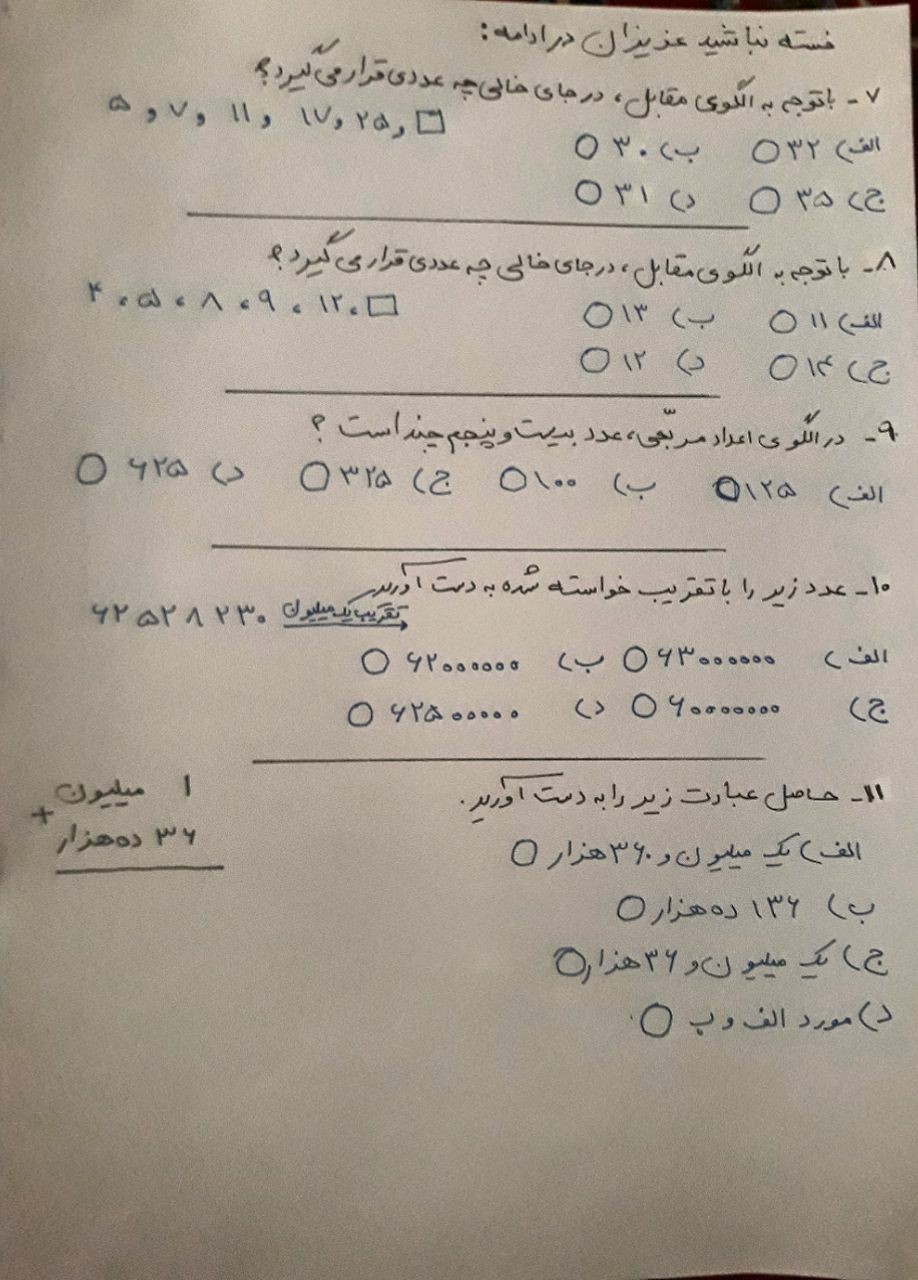 خسته نباشید عزیزان در ادامه:
۷- باتوجه به الگوی مقابل، در جای خالی چه عددی قرار می گیرد؟
۵ و ۷ و ۱۱ و ۱۷ و ۲۵ و □
الف) ۳۲ ○ ب) ۳۰ ○
ج) ۳۵ ○ د) ۳۱ ○
۸- با توجه به الگوی مقابل، در جای خالی چه عددی قرار می گیرد؟
۴، ۵، ۸، ۹، ۱۲، □
الف) ۱۱ ○ ب) ۱۳ ○
ج) ۱۴ ○ د) ۱۲ ○
۹- در الگوی اعداد مربّعی، عدد بیست و پنجم چند است؟
الف) ۱۲۵ ○ ب) ۱۰۰ ○ ج) ۳۲۵ ○ د) ۶۲۵ ○
۱۰- عدد زیر را با تقریب خواسته شده به دست آورید.
۶۲۵۲۸۲۳۰ تقریب یک میلیون →
الف) ۶۳۰۰۰۰۰۰ ○ ب) ۶۲۰۰۰۰۰۰ ○
ج) ۶۰۰۰۰۰۰۰ ○ د) ۶۲۵۰۰۰۰۰ ○
۱۱- حاصل عبارت زیر را به دست آورید.
۱ میلیون
+
۳۶ ده هزار
الف) یک میلیون و ۳۶۰ هزار ○
ب) ۱۳۶ ده هزار ○
ج) یک میلیون و ۳۶ هزار ○
د) مورد الف و ب ○